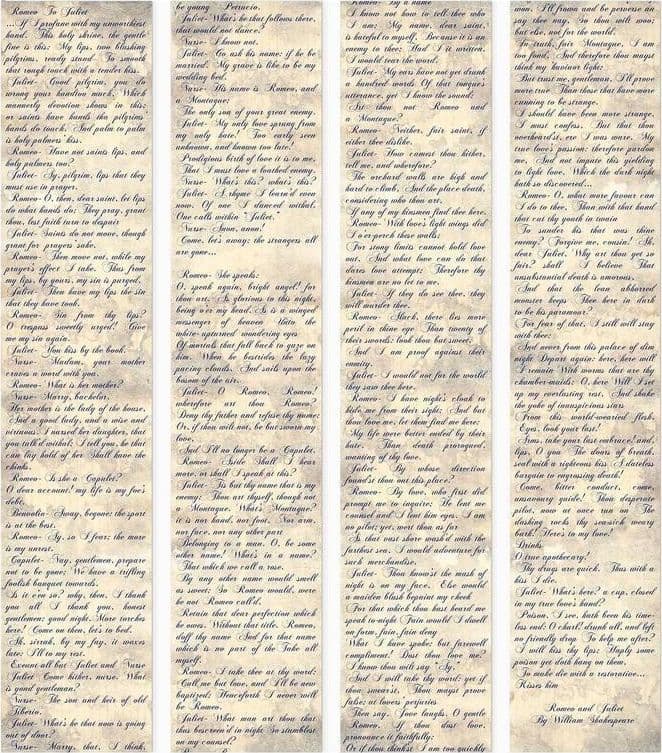 Romeo To Juliet
...If I profane with my unworthiest
hand. This holy shrine, the gentle
fine is this: My lips, two blushing
pilgrims, ready stand To smooth
that rough touch with a tender kiss.
Juliet- Good pilgrim, you do
wrong your hand too much, Which
mannerly devotion shows in this;
or saints have hands the pilgrims
hands do touch, And palm to palm
is holy palmers' kiss.
Romeo- Have not saints lips, and
holy palmers too?
Juliet- Ay, pilgrim, lips that they
must use in prayer.
Romeo- O, then, dear saint, let lips
do what hands do; They pray, grant
thou, lest faith turn to despair
Juliet- Saints do not move, though
grant for prayers' sake.
Romeo- Then move not, while my
prayer's effect I take. Thus from
my lips, by yours, my sin is purged.
Juliet- Then have my lips the sin
that they have took.
Romeo- Sin from thy lips?
O trespass sweetly urged! Give
me my sin again.
Juliet- You kiss by the book.
Nurse- Madam, your mother
craves a word with you.
Romeo- What is her mother?
Nurse- Marry, bachelor,
Her mother is the lady of the house,
And a good lady, and a wise and
virtuous: I nursed her daughter, that
you talk'd withal; I tell you, he that
can lay hold of her Shall have the
chinks.
Romeo- Is she a Capulet?
O dear account! my life is my foe's
debt.
Benvolio- Away, begone; the sport
is at the best.
Romeo- Ay, so I fear; the more
is my unrest.
Capulet- Nay, gentlemen, prepare
not to be gone; We have a trifling
foolish banquet towards.
Is it e'en so? why, then, I thank
you all I thank you, honest
gentlemen; good night. More torches
here! Come on then, let's to bed.
Ah, sirrah, by my fay, it waxes
late: I'll to my rest.
Exeunt all but Juliet and Nurse
Juliet Come hither, nurse. What
is yond gentleman?
Nurse- The son and heir of old
Tiberio.
Juliet- What's he that now is going
out of door?
Nurse- Marry, that, I think,
be young Petrucio.
Juliet- What's he that follows there,
that would not dance?
Nurse- I know not.
Juliet- Go ask his name: if he be
married, My grave is like to be my
wedding bed.
Nurse- His name is Romeo, and
a Montague;
The only son of your great enemy.
Juliet- My only love sprung from
my only hate! Too early seen
unknown, and known too late!
Prodigious birth of love it is to me,
That I must love a loathed enemy.
Nurse- What's this? what's this?
Juliet- A rhyme I learn'd even
now, Of one I danced withal.
One calls within "Juliet."
Nurse- Anon, anon!
Come, let's away; the strangers all
are gone...
Romeo- She speaks:
O, speak again, bright angel! for
thou art, As glorious to this night,
being o'er my head, As is a winged
messenger of heaven Unto the
white-upturned wondering eyes
Of mortals that fall back to gaze on
him, When he bestrides the lazy
pacing clouds, And sails upon the
bosom of the air.
Juliet- O Romeo, Romeo!
wherefore art thou Romeo?
Deny thy father and refuse thy name;
Or, if thou wilt not, be but sworn my
love,
And I'll no longer be a Capulet.
Romeo- Aside Shall I hear
more, or shall I speak at this?
Juliet- 'Tis but thy name that is my
enemy; Thou art thyself, though not
a Montague. What's Montague?
it is nor hand, nor foot, Nor arm,
nor face, nor any other part
Belonging to a man. O, be some
other name! What's in a name?
That which we call a rose,
By any other name would smell
as sweet; So Romeo would, were
he not Romeo call'd,
Retain that dear perfection which
he owes, Without that title. Romeo,
doff thy name And for that name
which is no part of thee Take all
myself.
Romeo- I take thee at thy word:
Call me but love, and I'll be new
baptized; Henceforth I never will
be Romeo.
Juliet- What man art thou that
thus bescreen'd in night So stumblest
on my counsel?
Romeo- By a name
I know not how to tell thee who
I am; My name, dear saint,
is hateful to myself, Because it is an
enemy to thee; Had I it written,
I would tear the word.
Juliet- My ears have not yet drunk
a hundred words Of that tongue's
utterance, yet I know the sound:
Art thou not Romeo and
Montague?
Romeo- Neither, fair saint, if
either thee dislike.
Juliet- How camest thou hither,
tell me, and wherefore?
The orchard walls are high and
hard to climb, And the place death,
considering who thou art,
If any of my kinsmen find thee here.
Romeo- With love's light wings did
I o'er-perch these walls;
For stony limits cannot hold love
out, And what love can do that
dares love attempt; Therefore thy
kinsmen are no let to me.
Juliet- If they do see thee, they
will murder thee.
Romeo- Alack, there lies more
peril in thine eye Than twenty of
their swords: look thou but sweet,
And I am proof against their
enmity.
Juliet- I would not for the world
they saw thee here.
Romeo- I have night's cloak to
hide me from their sight; And but
thou love me, let them find me here:
My life were better ended by their
hate, Than death prorogued,
wanting of thy love.
Juliet- By whose direction
found'st thou out this place?
Romeo- By love, who first did
prompt me to inquire; He lent me
counsel and I lent him eyes. I am
no pilot; yet, wert thou as far
As that vast shore wash'd with the
farthest sea, I would adventure for
such merchandise.
Juliet- Thou know'st the mask of
night is on my face, Else would
a maiden blush bepaint my cheek
For that which thou hast heard me
speak to-night Fain would I dwell
on form, fain, fain deny
What I have spoke: but farewell
compliment! Dost thou love me?
I know thou wilt say "Ay,"
And I will take thy word: yet if
thou swear'st, Thou mayst prove
false; at lovers' perjuries
Then say, Jove laughs. O gentle
Romeo, If thou dost love,
pronounce it faithfully:
Or if thou think'st I am too quickly
won, I'll frown and be perverse an
say thee nay, So thou wilt woo;
but else, not for the world.
In truth, fair Montague, I am
too fond, And therefore thou mayst
think my havior light:
But trust me, gentleman, I'll prove
more true Than those that have more
cunning to be strange.
I should have been more strange,
I must confess, But that thou
overheard'st, ere I was ware, My
true love's passion: therefore pardon
me, And not impute this yielding
to light love, Which the dark night
hath so discovered...
Romeo- O, what more favour can
I do to thee, Than with that hand
that cut thy youth in twain
To sunder his that was thine
enemy? Forgive me, cousin! Ah,
dear Juliet, Why art thou yet so
fair? shall I believe That
unsubstantial death is amorous,
And that the lean abhorred
monster keeps Thee here in dark
to be his paramour?
For fear of that, I still will stay
with thee;
And never from this palace of dim
night Depart again: here, here will
I remain With worms that are thy
chamber-maids; O, here Will I set
up my everlasting rest, And shake
the yoke of inauspicious stars
From this world-wearied flesh.
Eyes, look your last!
Arms, take your last embrace! and,
lips, O you The doors of breath,
seal with a righteous kiss A dateless
bargain to engrossing death!
Come, bitter conduct, come,
unsavoury guide! Thou desperate
pilot, now at once run on The
dashing rocks thy sea-sick weary
bark! Here's to my love!
Drinks
O true apothecary!
Thy drugs are quick. Thus with a
kiss I die.
Juliet- What's here? a cup, closed
in my true love's hand?
Poison, I see, hath been his time-
less end: O churl! drunk all, and left
no friendly drop To help me after?
I will kiss thy lips; Haply some
poison yet doth hang on them,
To make die with a restorative...
Kisses him
Romeo and Juliet
By William Shakespeare